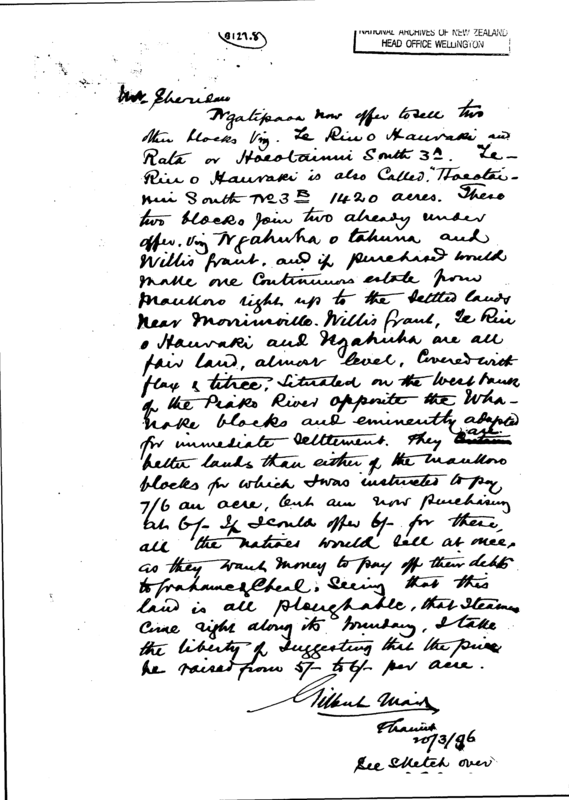 B129.8
NATIONAL ARCHIVES OF NEW ZEALAND
HEAD OFFICE WELLINGTON
Mr Sheridan
Ngatipaoa now offer to sell two
other blocks viz. Te Riu o Hauraki and
Rata or Hoeotainui South 3A. Te
Riu o Hauraki is also called "Hoeotai-
nui South No 3B 1420 acres. These
two blocks join two already under
offer. viz Ngahuha o tahuna and
Willis grant. and if purchased would
make one continuous estate from
Maukoro right up to the settled lands
near Morrinsville. Willis grant, Te Riu
o Hauraki and Ngahuha are all
fair land, almost level, covered with
flax & titree; Situated on the West bank
of the Piako River opposite the Wha-
nake blocks and eminently adapted
for immediate settlement. They are
better lands than either of the Maukoro
blocks for which I was instructed to pay
7/6 an acre, but am now purchasing
at 6/- If I could offer 6/- for these,
all the natives would sell at once,
as they want money to pay off their debts
to Grahame & Cheal. Seeing that this
land is all ploughable, that Steamers
come right along its boundary, I take
the liberty of suggesting that the price
be raised from 5/- to 6/- per acre.
Gilbert Mair
Thames
20/3/96
See Sketch over